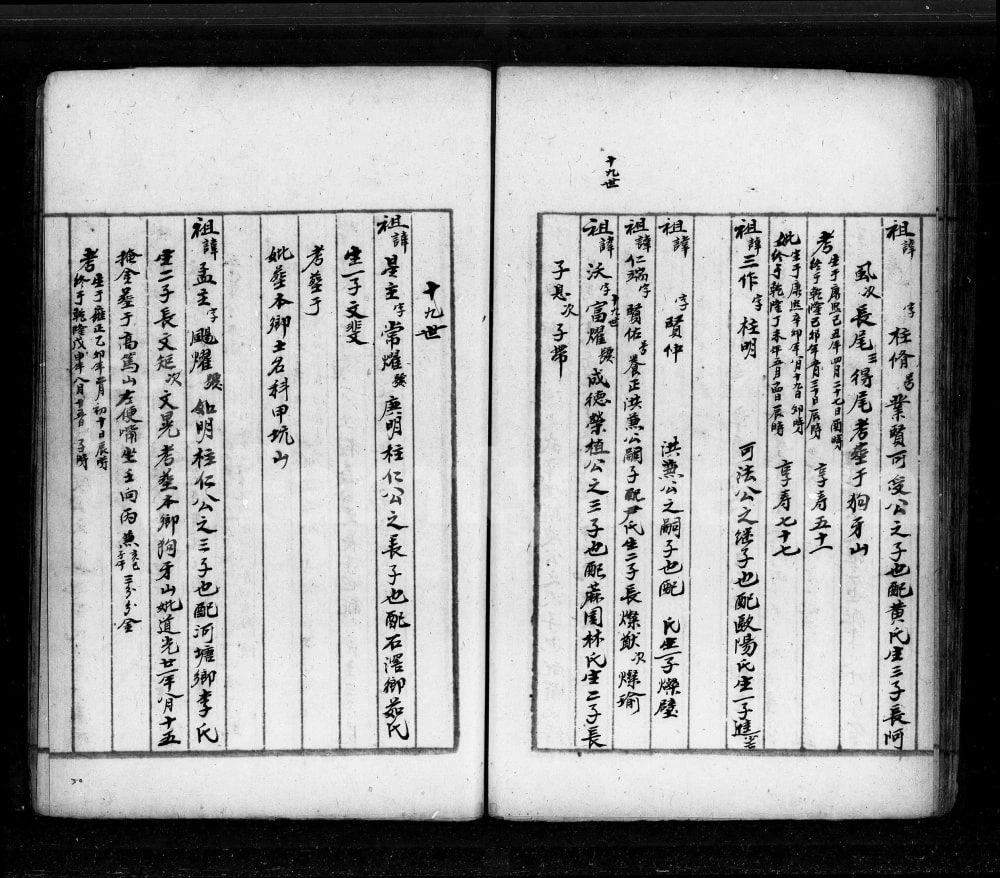 祖諱 字柱脩号業賢可受公之子也配黄氏生三子長阿
風次長尾三得尾考塟于狗牙山
考生于康熙己丑年四月二十七日酉時
終于乾隆己卯年五月三十日辰時 享寿五十一
妣生于康熙辛卯年八月十九日卯時
終于乾隆丁未年五月四日辰時 享寿七十七
祖諱三作字柱明 可法公之继子也配歐陽氏生一子進
祖諱 字賢仲 洪燕公之嗣子也配 氏生一子燦璧
祖諱仁瑞字賢佑号養正洪燕公嗣子配尹氏生二子長燦猷次燦瑜
十九世
祖諱沃字富燿號成德榮植公之三子也配蔴園林氏生二子長
十九世
子息次子帶
十九世
祖諱是主字常燿號庚明柱仁公之長子也配石滘鄉茹氏
生一子文斐
考塟于
妣塟本鄉土名科甲坑山
祖諱孟主字颺燿號如明柱仁公之三子也配河塘鄉李氏
生二子長文矩次文晃考塟本鄉狗牙山妣道光廿一年八月十五
捡金塟于高篤山左便嘴坐壬向丙兼亥巳子午三分分金
考生于雍正乙卯年二月初十日辰時
終于乾隆戊申年八月十五日子時